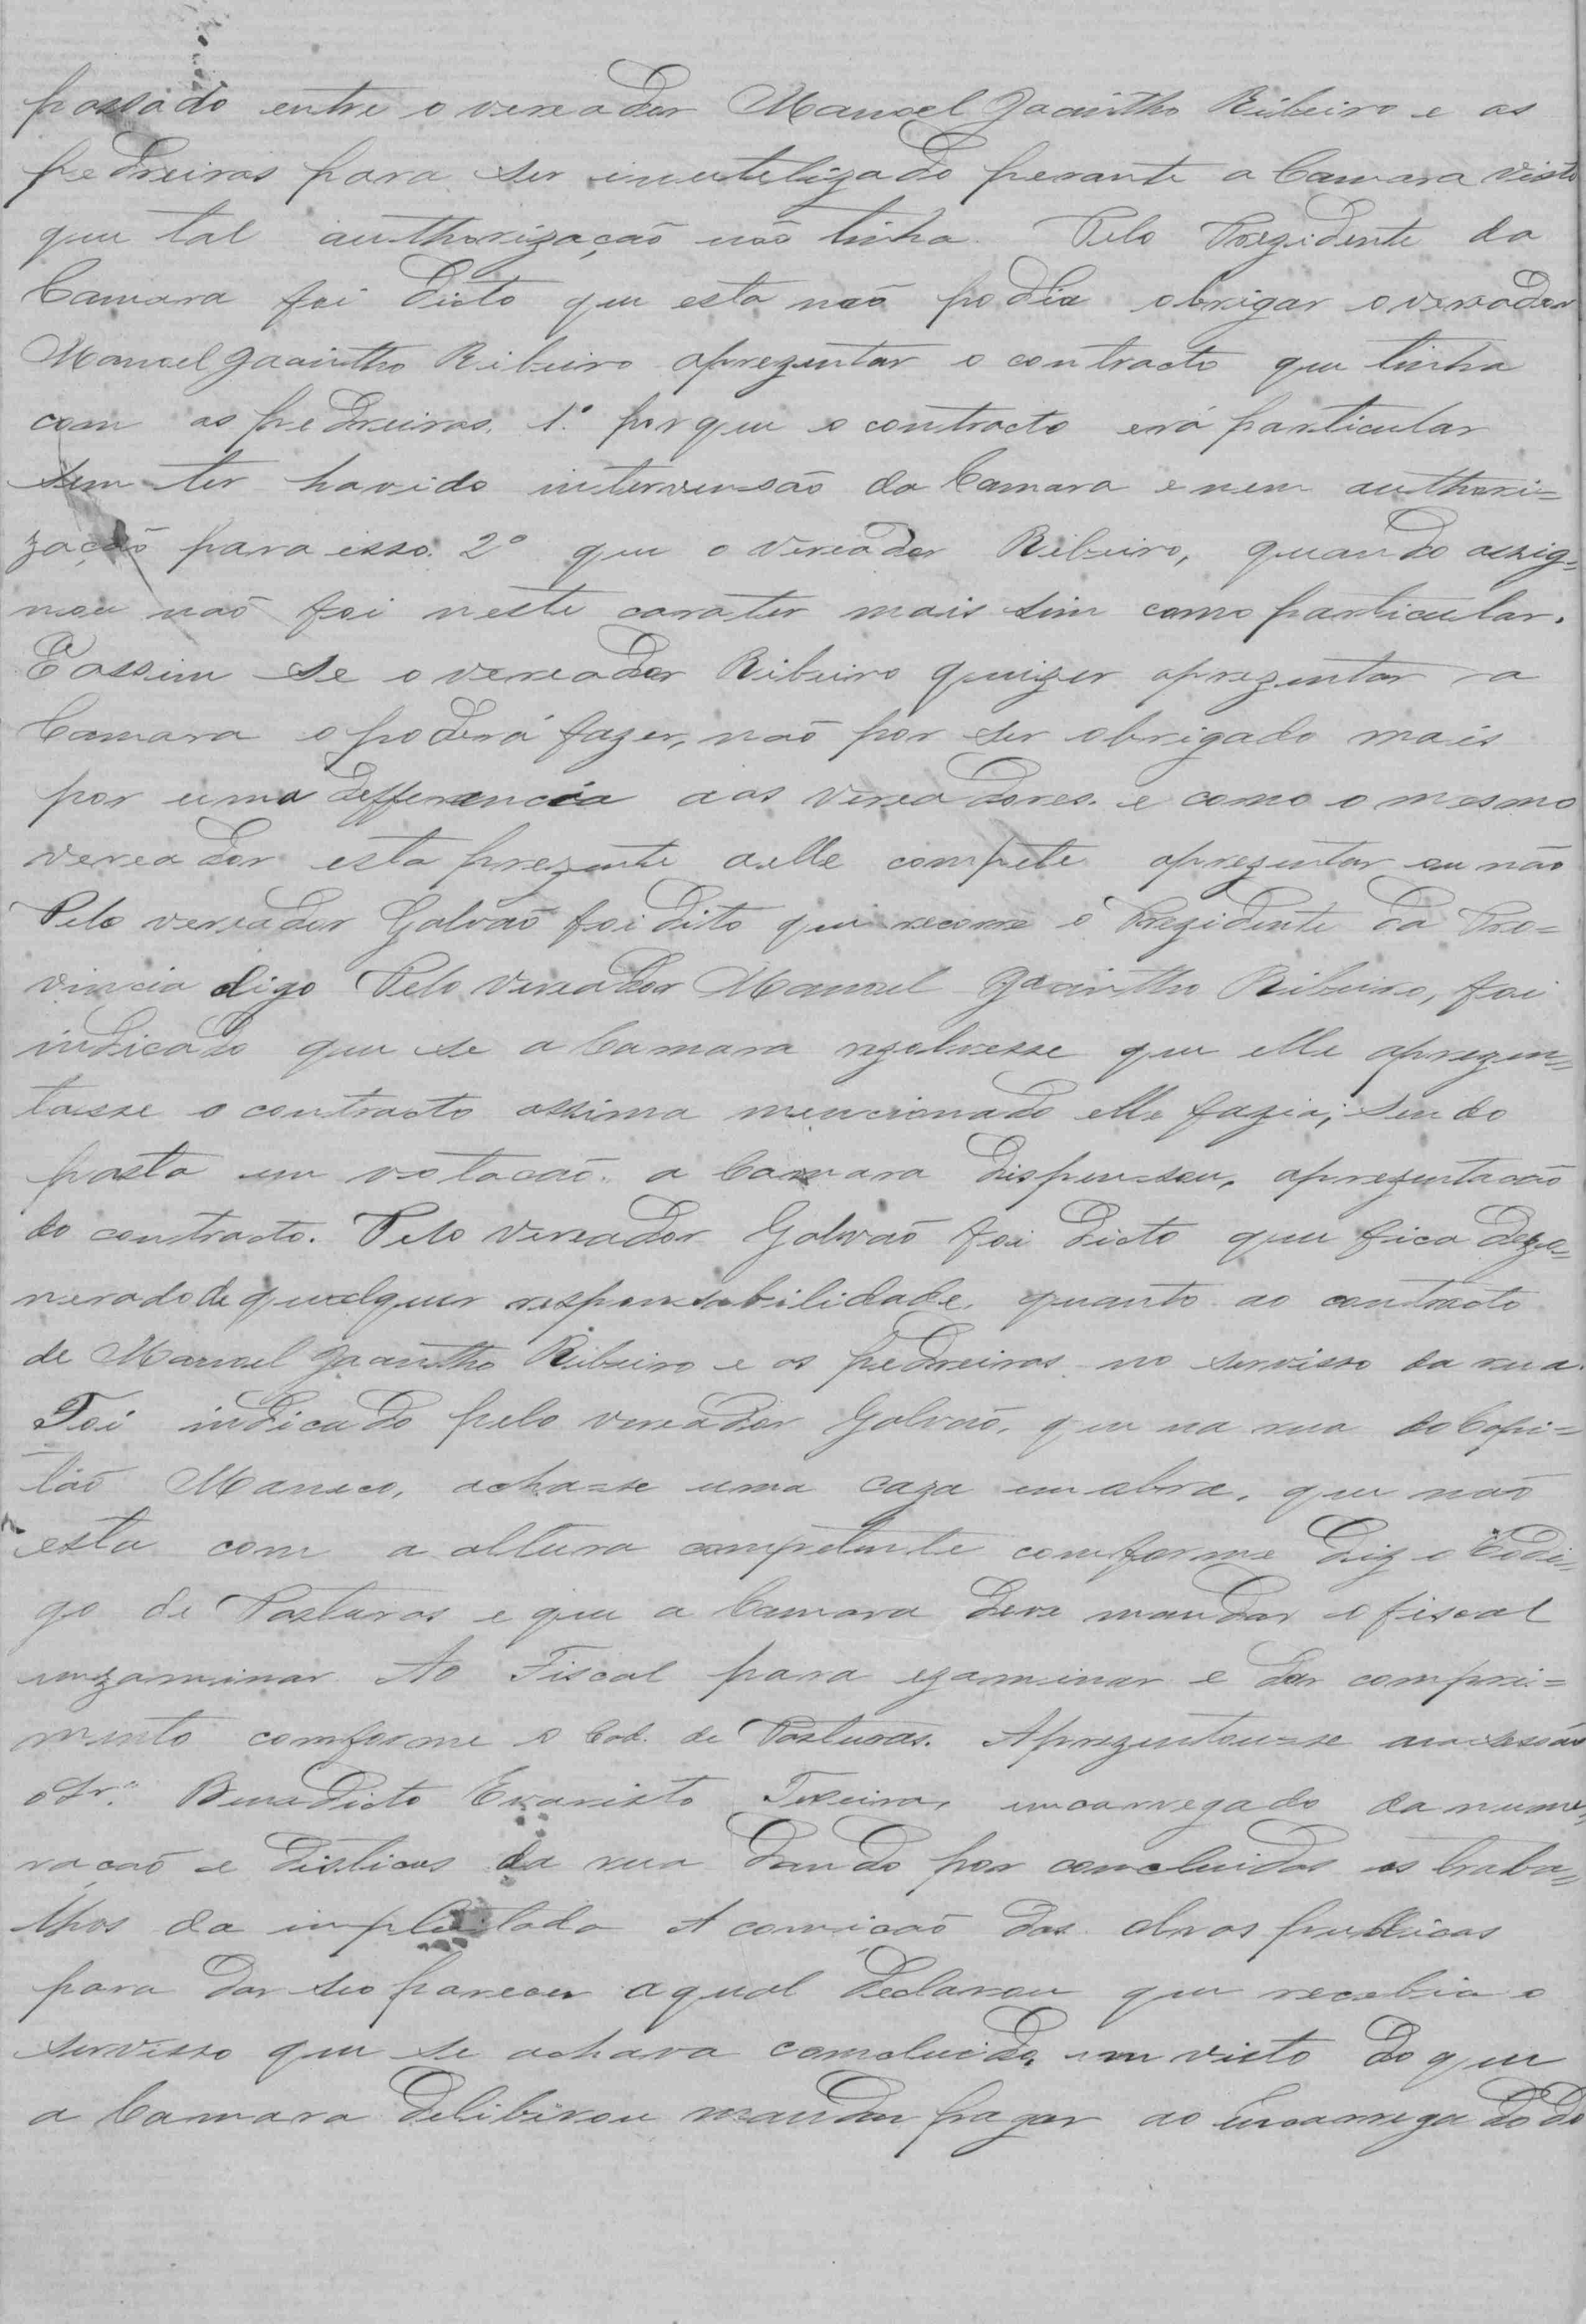 passado entre o vereador Manoel Jacintho Ribeiro e os
pedreiros para ser inutelizado perante a Camara visto
que tal authorização não tinha. Pelo Prezidente da
Camara foi dicto que esta não podia obrigar o vereador
Manoel Jacintho Ribeiro aprezentar o contracto que tinha
com os pedreiros. 1º porque o contracto erá particular
sem ter havido intervensão da Camara e nem authori=
zação para isso. 2º que o vereador Ribeiro, quando assig=
nou não foi neste carater mais sim como particular.
E assim se o vereador Ribeiro quizer aprezentar a
Camara o poderá fazer, não por ser obrigado mais
por uma defferencia aos vereadores. e como o mesmo
vereador esta prezente a elle compete aprezentar ou não
Pelo vereador Galvão foi dito que recorre o Prezidente da Pro=
vincia digo Pelo vereador Manoel Jacintho Ribeiro, foi
indicado que se a Camara rezolvesse que elle aprezen=
tasse o contracto assima mencionado elle fazia; sendo
posta em votacão. a Camara dispensou, aprezentacão
do contracto. Pelo vereador Galvão foi dicto que fica dezo=
nerado de qualquer responsabilidade, quanto ao contracto
de Manoel Jacintho Ribeiro e os pedreiros no servisso da rua.
Foi indicado pelo vereador Galvão, que na rua do Capi=
tão Maneco, acha=se uma caza em obra, que não
esta com a altura competente comforme diz o Codi=
go de Posturas e que a Camara deve mandar o fiscal
inzaminar. Ao Fiscal para ezaminar e dar compri=
mento comforme o Cod. de Posturas. Aprezentou=se a sessão
o Sr. Benedicto Evaristo Texeira, encarregado da nume=
racão e disticos da rua dando por concluidos os traba=
lhos da impleitada A comicão das obras publicas
para dar seo parecer a qual declarou que recebia o
servisso que se achava comcluido, em visto do que
a Camara deliberou mandar pagar ao Encarregado do